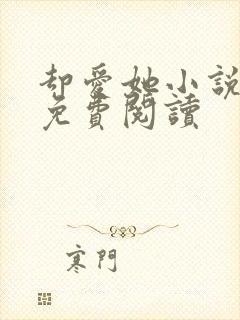 却愛她小說
免費閱讀
寒門